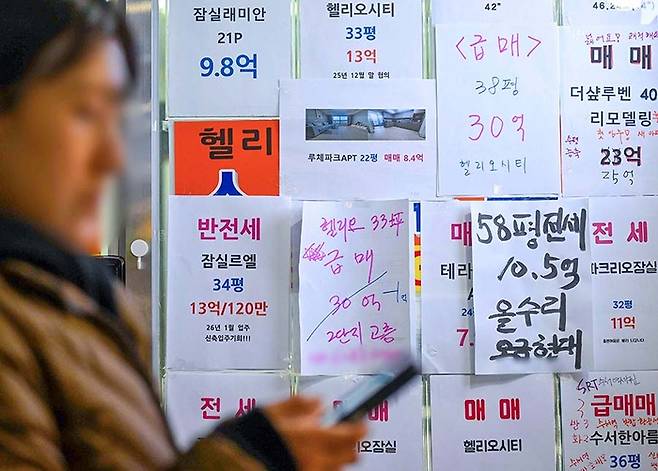 잠실래미안
21P
9.8억
헬리오시티
33평
13억
25년 12월 말 협의
42"
<급매>
38평
30억
헬리오시티
매매
더샾루벤 40
리모델링
23억
25억
헬리
루체파크APT 22평 매매 8.4억
반전세
잠실르엘
34평
13억/120만
26년 1월 입주
신축입주기회!!!
헬리오 33평
급매
30억
2단지 고층
매
테라
24
7.
58평전세
10.5억
올수리
전세
파크리오잠실
32평
11억
전세
매매
리오잠실
매매
헬리오시티
SRT
급매매
수서한아름
36평